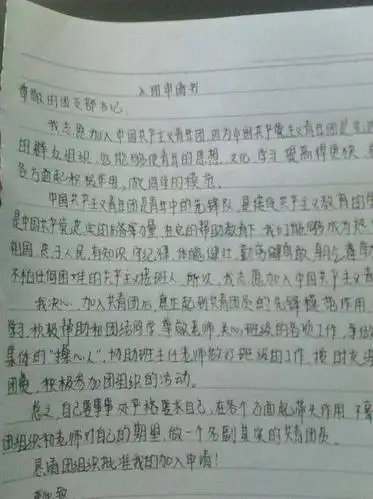 入团申请书
尊敬的团支部书记:
我志愿加入中国共产主义青年团,因为中国共产主义青年团是先进
的群众组织,它能够使青年的思想、文化、学习提高得更快,
各方面起积极作用,做同学的模范。
中国共产主义青年团是青年中的先锋队,是接受共产主义教育的
是中国共产党忠实的后备军。在它的帮助教育下,我们能够成为热
祖国,忠于人民,有知识,守纪律,体魄健壮,勤劳勇敢,朝气蓬勃
不怕任何困难的共产主义接班人。所以,我志愿加入中国共产主义青
我决心,加入共青团后,真正起到共青团员的先锋模范作用,
学习,积极帮助和团结同学,尊敬老师,关心班级的各项工作,争做
集体的"操心人",协助班主任老师做好班级的工作,按时交纳
团费,积极参加团组织的活动。
总之,自己要事事处处严格要求自己,在各个方面起带头作用,不辜
团组织和老师对自己的期望,做一个名副其实的共青团员。
恳请团组织批准我的加入申请!
此致